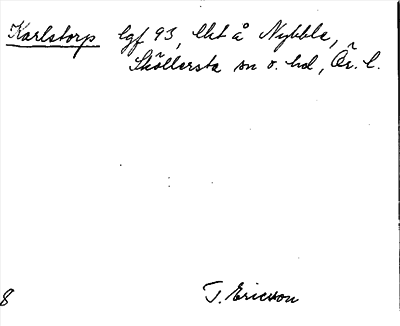 Karlstorp lgf 93, lht å Nybble,
Sköllersta sn o. hd, Ör. l.
8 T. Ericsson